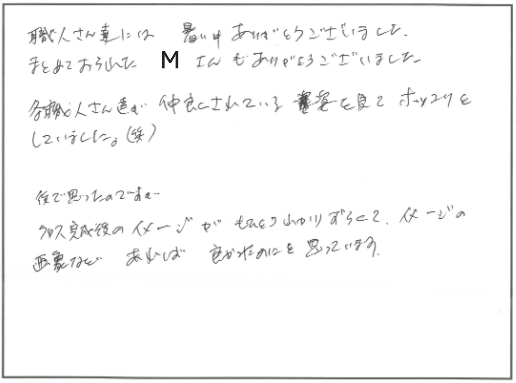 職人さん達には 暑い中 ありがとうございました。
まとめておられた M さんもありがとうございました。
各職人さん達が 仲良くされている 姿を見て ホッコリと
していました。(笑)
後で思ったのですが…
クロス完成後のイメージが もひとつわかりずらくて、イメージの
画象など あれば 良かったのにと思っています。